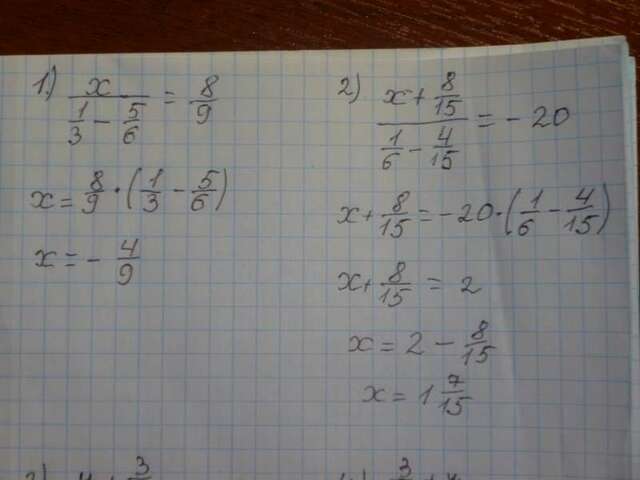 1.) x / (1/3 − 5/6) = 8/9
x = 8/9 · (1/3 − 5/6)
x = − 4/9
2) (x + 8/15) / (1/6 − 4/15) = − 20
x + 8/15 = −20 · (1/6 − 4/15)
x + 8/15 = 2
x = 2 − 8/15
x = 1 7/15